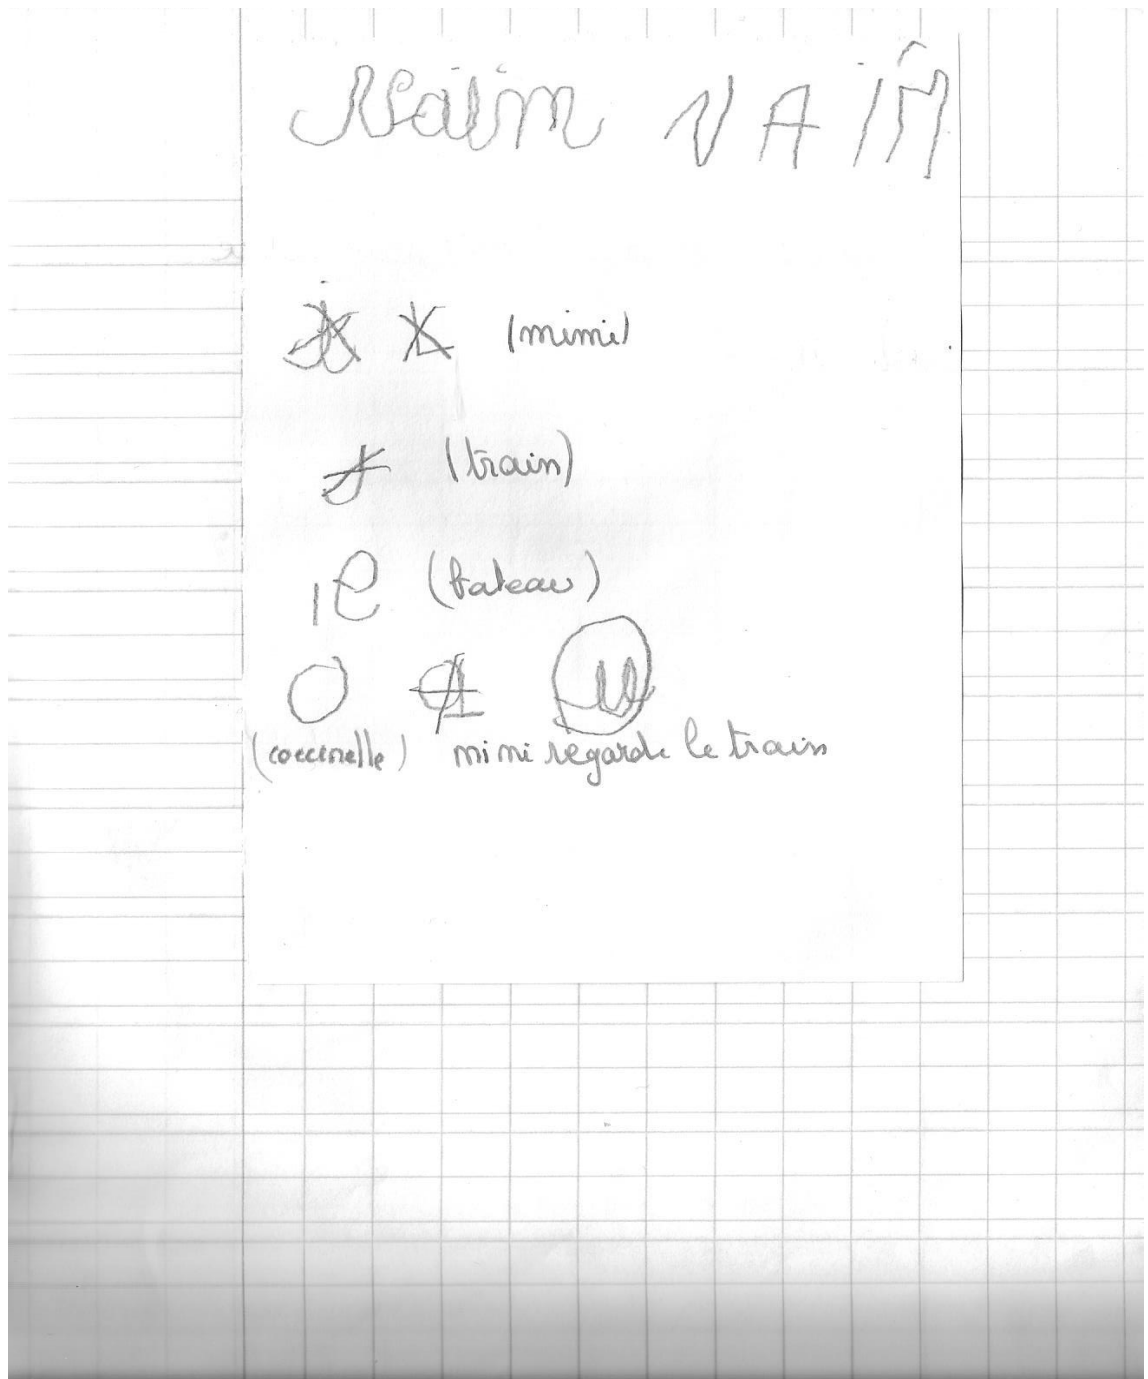 Naïm NAÏM
(mimi)
(train)
(bateau)
(coccinelle) mimi regarde le train